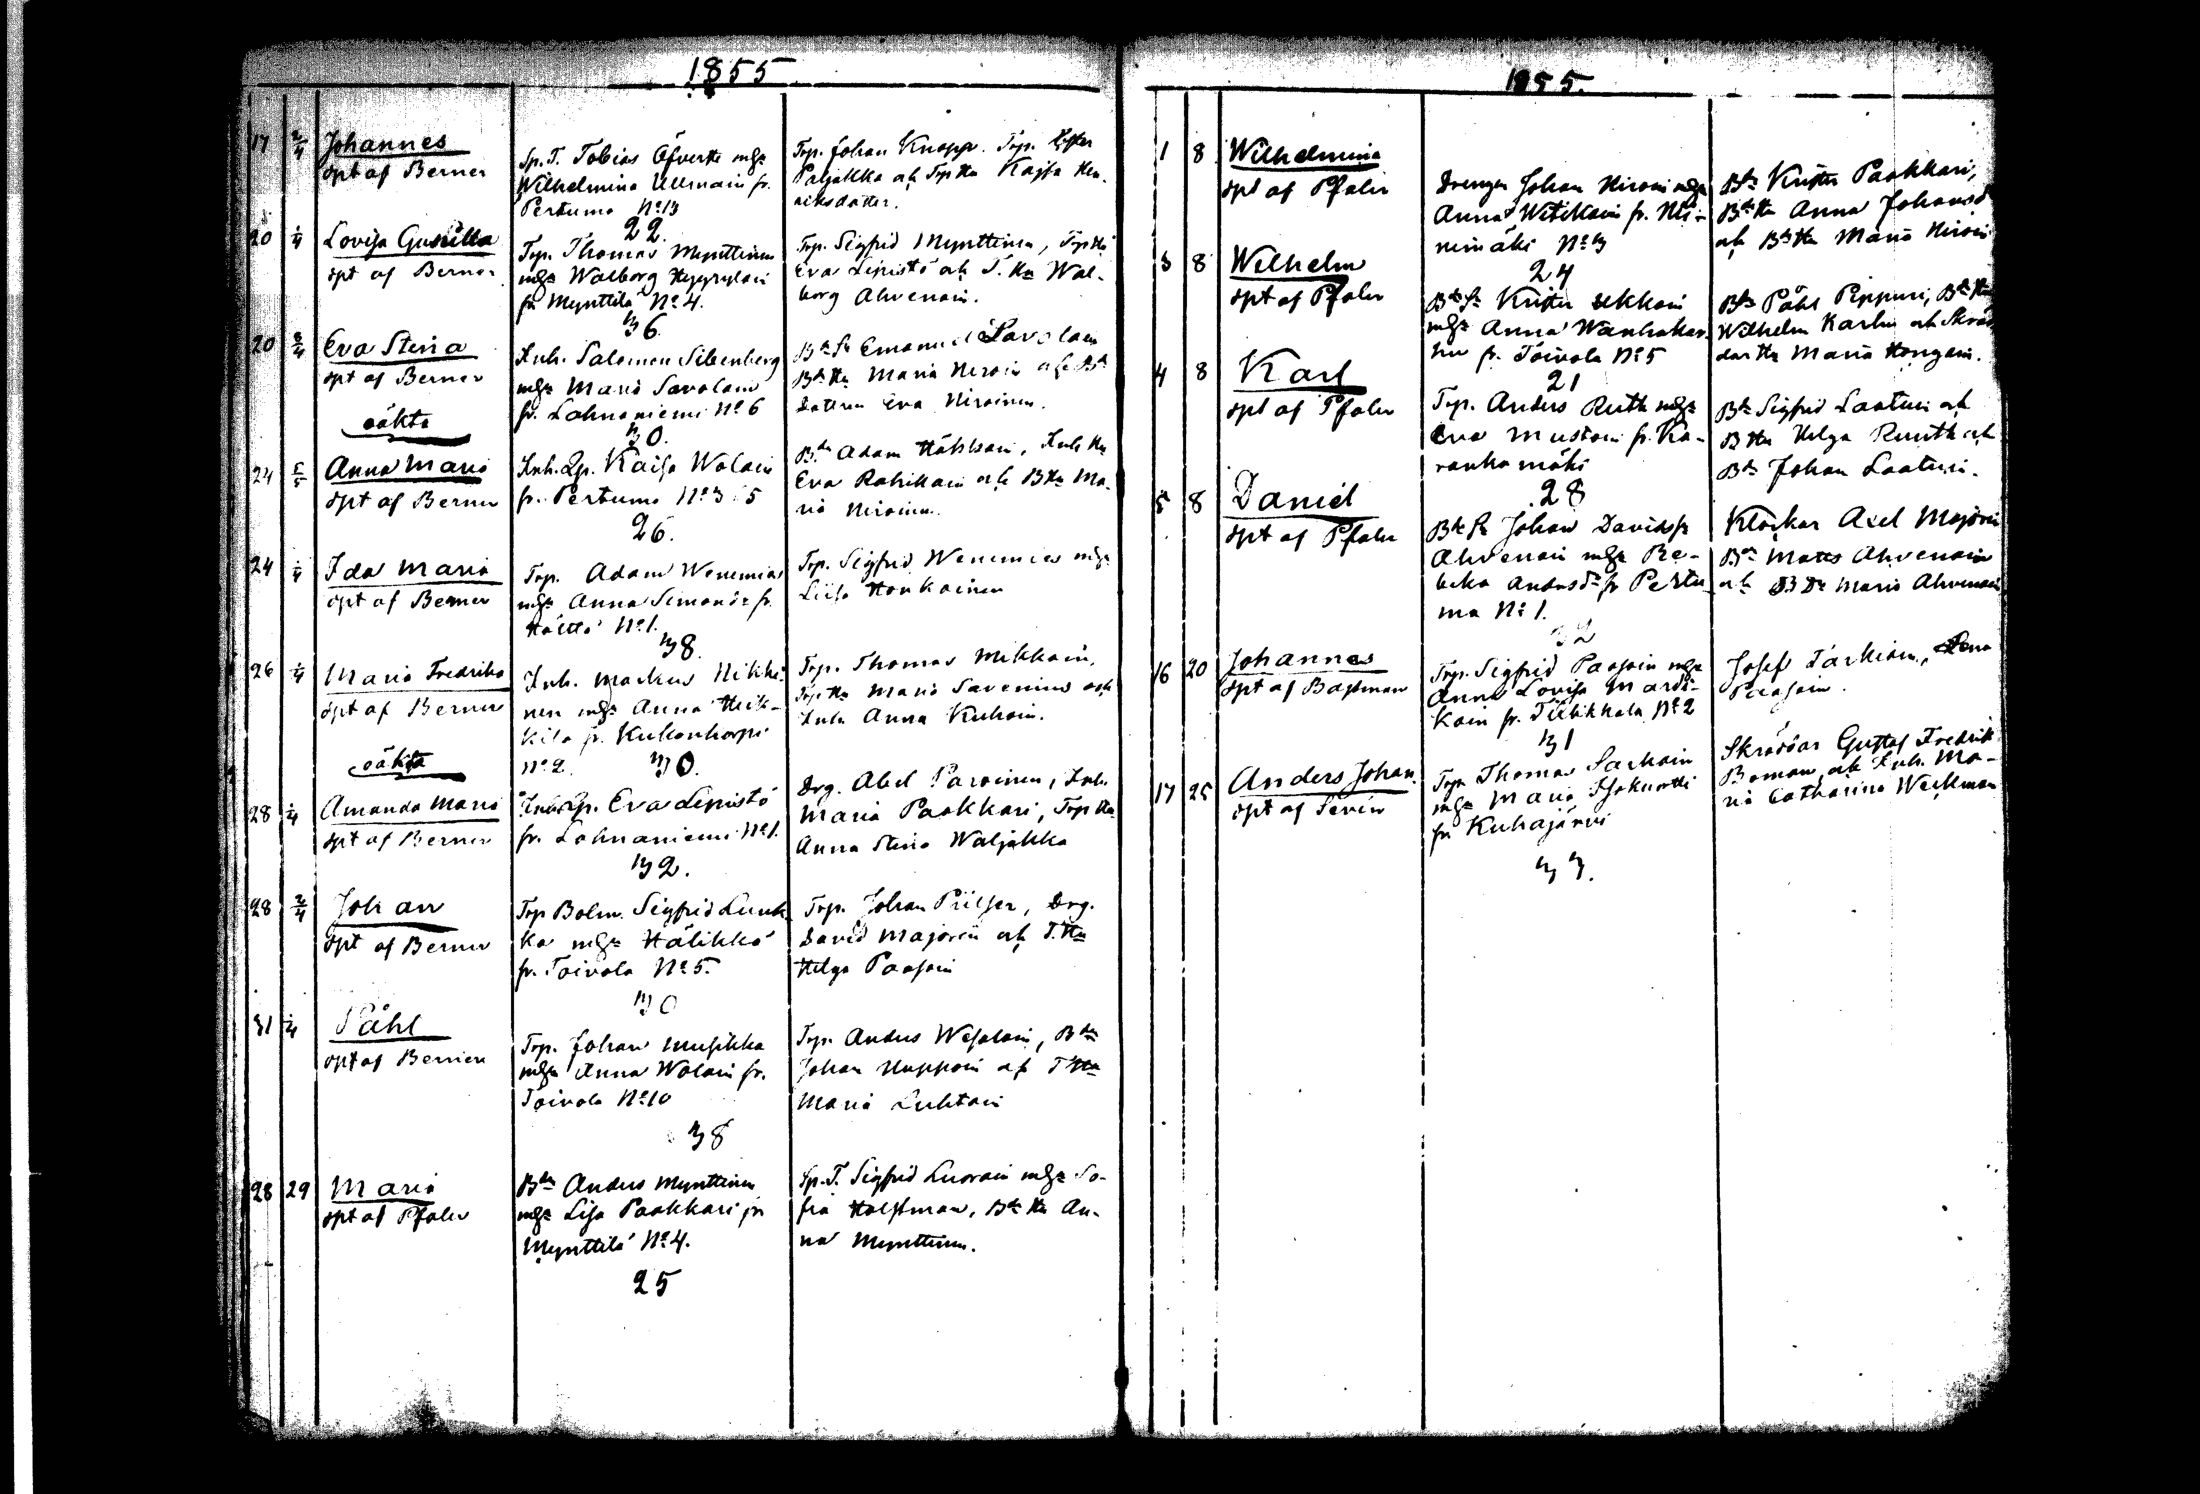 1855
17 2/4 Johannes
döpt af Berner
Sp. T. Tobias Öfverste m hs
Wilhelmina Ullmain fr.
Pertuma No 13
22.
Torp. Johan Knopp. Torp.
Paljakka och Torp Hu Kajsa Hen-
riksdotter.
20 1/4 Lovisa Gunilla
döpt af Berner
Torp. Thomas Mynttinen
m hs Walborg Hyyryläin
fr. Mynttilä No 4.
36
Torp. Sigfrid Mynttinen, Torp Hu
Eva Lepistö och T. Hu Wal-
borg Ahvenain.
20 2/4 Eva Stina
döpt af Berner
Inh. Salomon Silenberg
m hs Maria Savolain
fr. Lahnaniemi No 6
30.
Bde Sn Emanuel Savolain
Bde Hu Maria Hiroin och Bde
Dottren Eva Hiroinen.
oäkta
24 Anna Maria
döpt af Berner
Inh. Qp. Kaisa Wolain
fr. Pertuma No 3 5
26.
Bde Adam Hähkän, Inh Hu
Eva Rahikain och B Hu Ma-
ria Hiroinen.
24 1/4 Ida Maria
döpt af Berner
Torp. Adam Wenemies
m hs Anna Simonsdr fr.
Hölttä No 1.
38.
Torp. Sigfrid Wenemies m hs
Liisa Honkainen
26 1/4 Maria Fredrika
döpt af Berner
Inh. Markus Nikki-
nen m hs Anna Heik-
kilä fr. Kukonharju
No 2. 30.
Torp. Thomas Mikkain,
Torp Hu Maria Savenius och
Inh. Anna Kuhain.
oäkta
28 1/4 Amanda Maria
döpt af Berner
Inh Qp. Eva Lepistö
fr. Lahnaniemi No 1.
32.
Drg. Abel Paroinen, Inh.
Maria Paakkari, Torp Hu
Anna Stina Waljakka
28 2/4 Johan
döpt af Berner
Torp Bolm. Sigfrid Lunk-
ka m hs Hälikkä
fr. Toivola No 5.
30
Torp. Johan Piilser, Drg.
David Majorin och T. Hu
Helga Paasoin
31 1/4 Påhl
döpt af Berner
Torp. Johan Musikka
m hs Anna Wolain fr.
Toivola No 10
38
Torp. Anders Wesalain, Bde
Johan Huppoin och T Hu
Maria Luhtain
28 29 Maria
döpt af Pfaler
Bde Anders Mynttinen
m hs Lisa Paakkari fr
Mynttilä No 4.
25
Sp. T. Sigfrid Luorain m hs So-
fia Holstman, Bde Hu An-
na Mynttinen.
1855.
1 8 Wilhelmina
döpt af Pfaler
Drengen Johan Hiroin m hs
Anna Witikain fr. Nii-
nimäki No 3
24
Bde Krister Paakkari,
Bde Hu Anna Johansd
och Bde Hu Maria Hiroin
3 8 Wilhelm
döpt af Pfaler
Bde Sn Krister Ukkoin
m hs Anna Wanhakar-
hu fr. Toivola No 5
21
Bde Påhl Pippuri, Bde Hu
Wilhelm Karhu och Skräd-
dar Hu Maria Hongain.
4 8 Karl
döpt af Pfaler
Torp. Anders Ruth m hs
Eva Mustoin fr. Ka-
rankamäki
28
Bde Sigfrid Laaturi och
B Hu Helga Ruuth och
Bde Johan Laaturi.
5 8 Daniel
döpt af Pfaler
Bde Sn Johan Davidss
Ahvenain m hs Re-
beka Andersdr fr Pertu-
ma No 1.
32
Klockar Axel Majorin
Bde Matts Ahvenain
och B Dr Maria Ahvenain
16 20 Johannes
döpt af Bastman
Torp. Sigfrid Paasoin m hs
Anna Lovisa Mardi-
kain fr. Tiilikkala No 2
31
Josef Tarkiain, Lena
Paasoin.
17 25 Anders Johan
döpt af Sevin
Torp Thomas Sarkain
m hs Maria
fr Kuhajärvi
33.
Skräddar Gustaf Fredrik
Boman och Inh. Ma-
ria Catharina Weckman